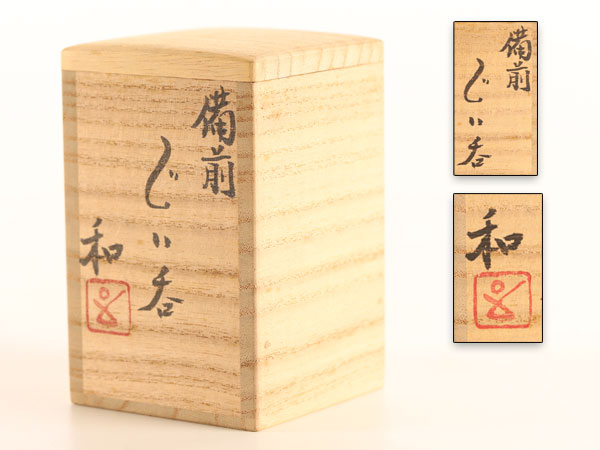 備前
ぐい呑
和
備前
ぐい呑
和